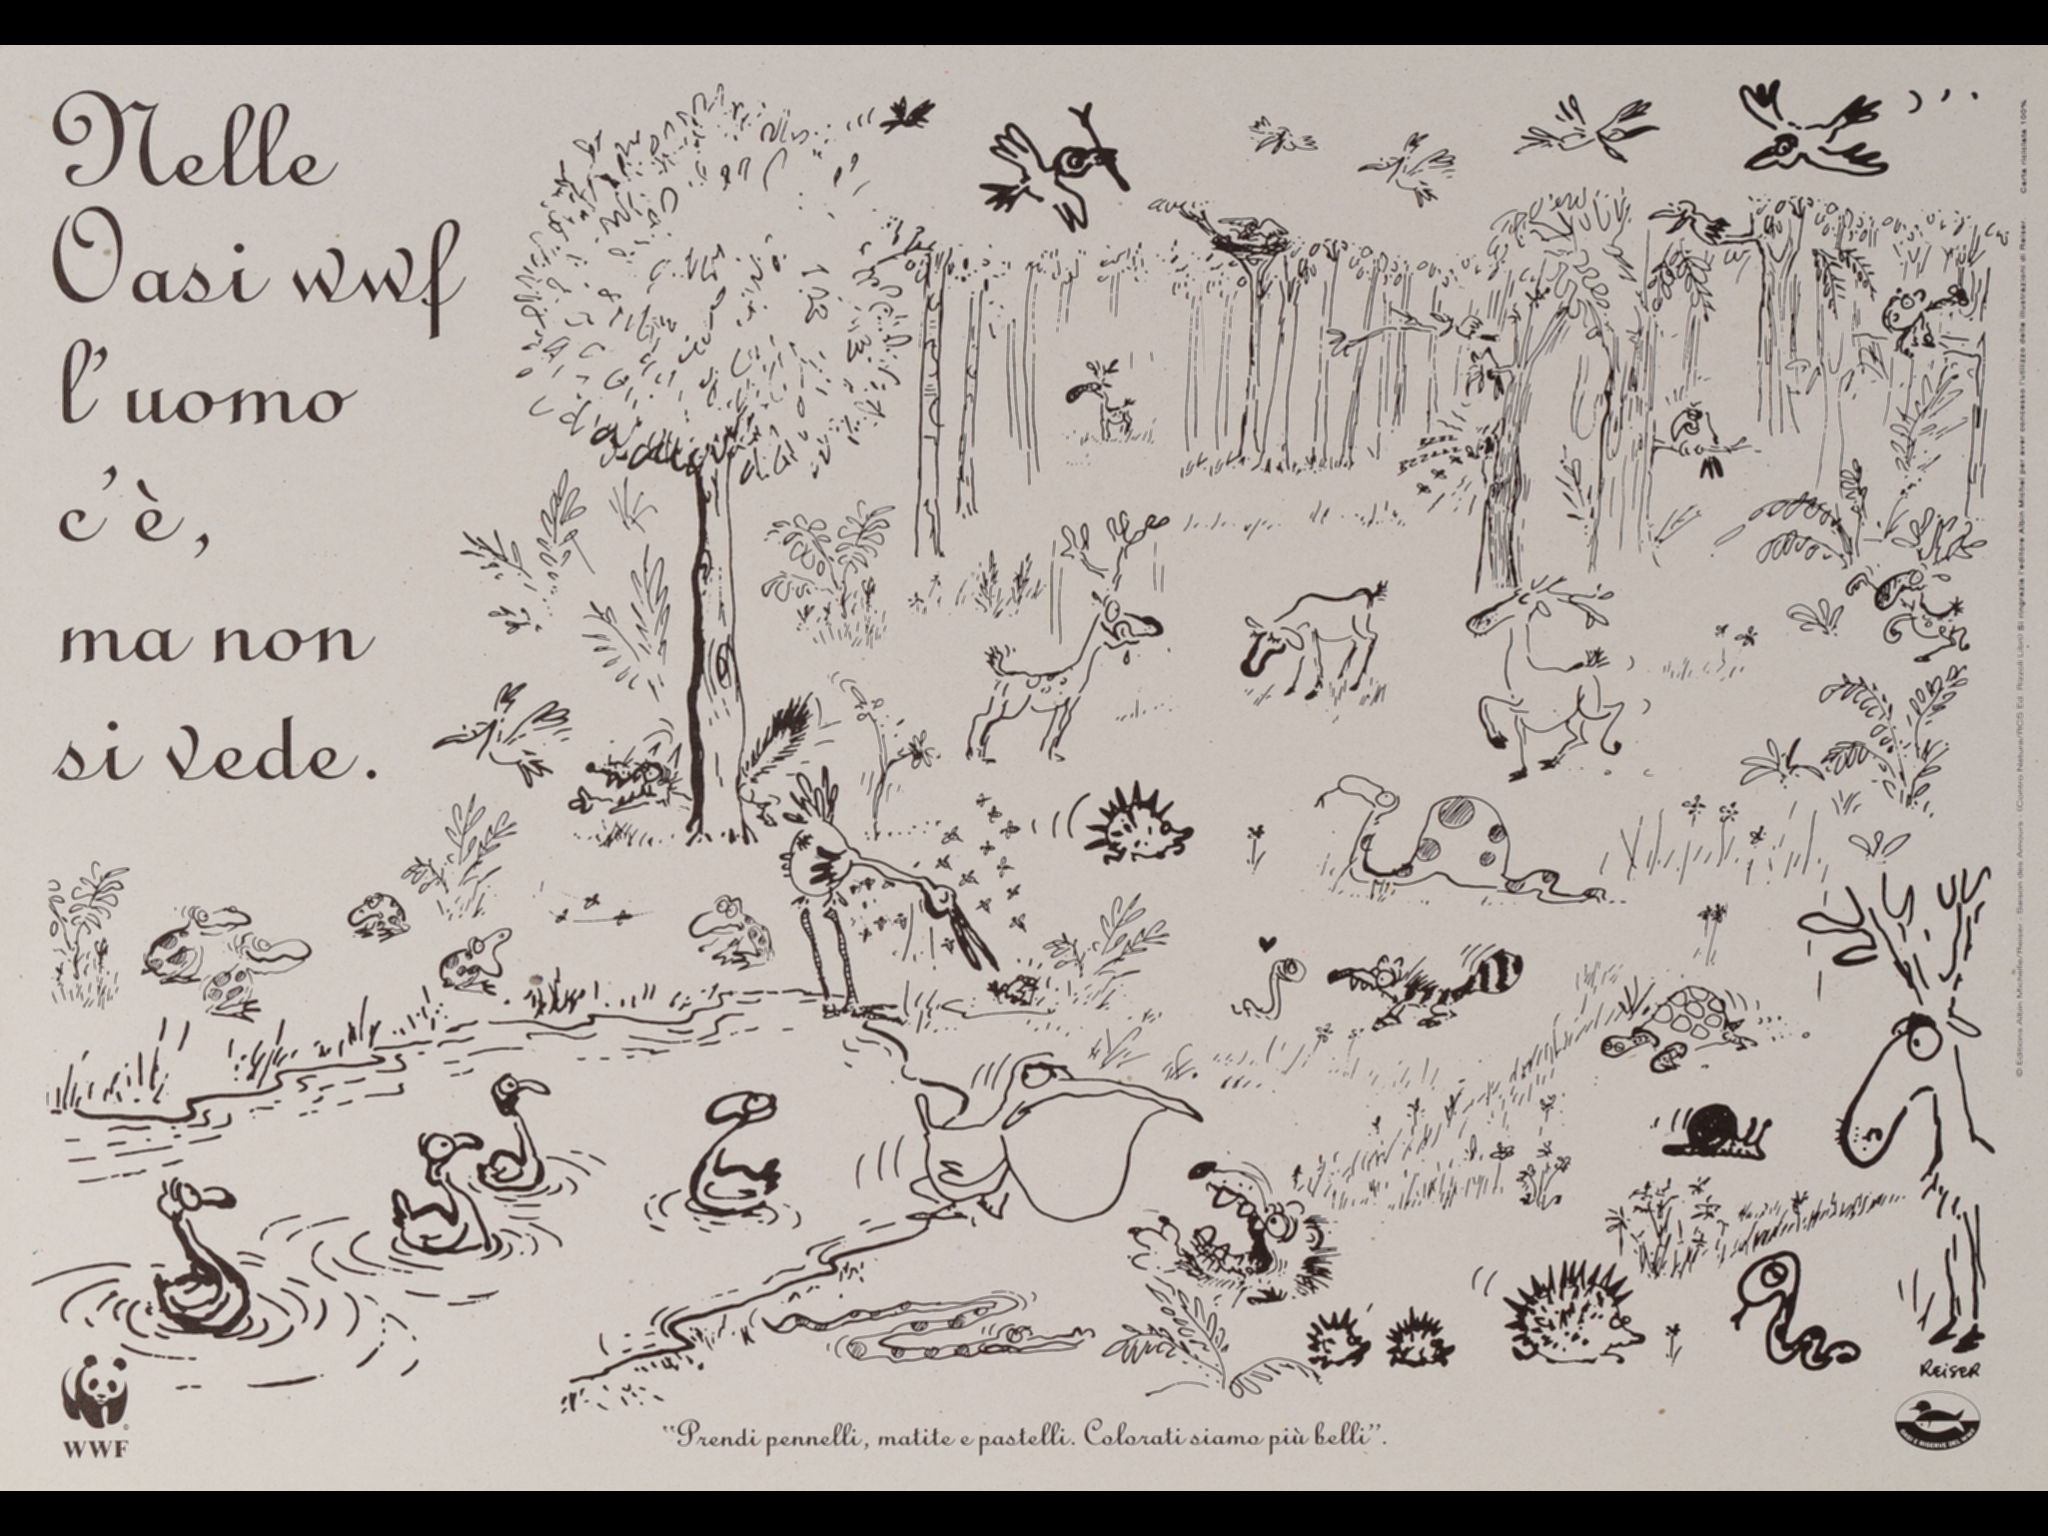 Nelle
Oasi wwf
l'uomo
c'è,
ma non
si vede.
zzzz
zzzzz
REISER
WWF
"Prendi pennelli, matite e pastelli. Colorati siamo più belli".
OASI E RISERVE DEL WWF
© Editions Albin Michel
Si ringrazia l'editore Albin Michel per aver concesso l'utilizzo delle illustrazioni di Reiser.
Carta riciclata 100%